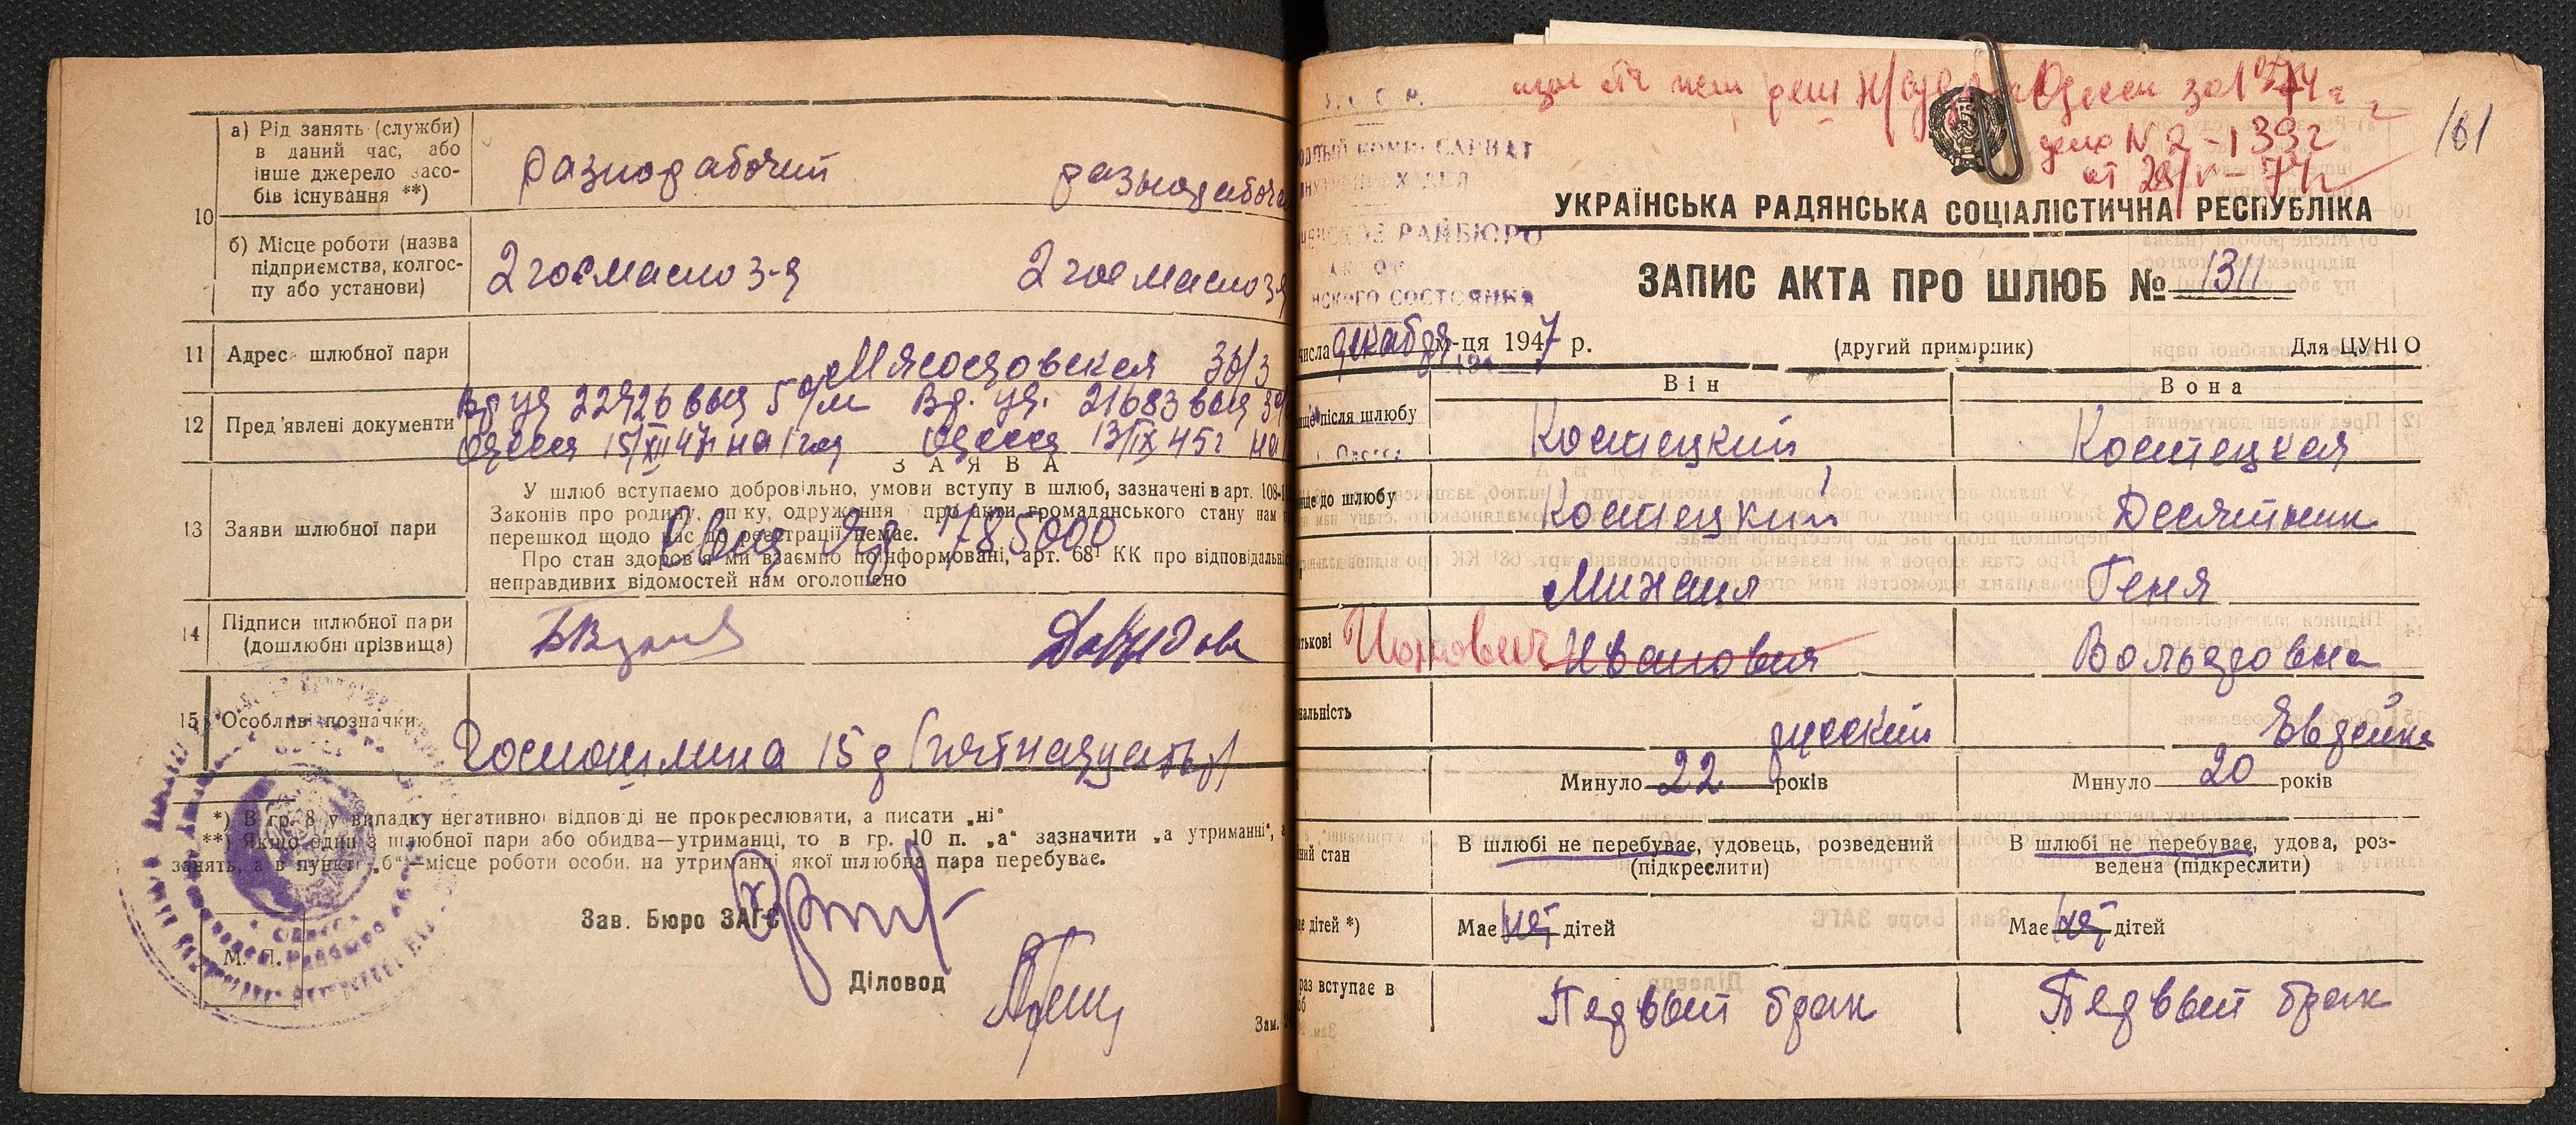 а) Рід занять (служби)
в даний час, або
інше джерело засо-
бів існування **)
Разнорабочий
разнорабоча
10
б) Місце роботи (назва
підприємства, колгос-
пу або установи)
2 госмасло з-д
2 госмасло з-д
11 Адрес шлюбної пари
Мясоедовская 36/3
12 Пред'явлені документи
Вр уд 22926 выд 5 о/м Вр. уд. 21683 выд 3
Одесса 15/XII 47г на 1 год Одесса 13/IX 45г на
ЗАЯВА
13 Заяви шлюбної пари
У шлюб вступаємо добровільно, умови вступу в шлюб, зазначені в арт. 108-1
Законів про родину, опіку, одруження про акти громадянського стану нам
перешкод щодо нас до реєстрації немає.
785000
Про стан здоров'я ми взаємно поінформовані, арт. 68¹ КК про відповідальні
неправдивих відомостей нам оголошено
14 Підписи шлюбної пари
(дошлюбні прізвища)
15 Особливі позначки
Госпошлина 15 р (пятнадцать р)
*) В гр. 8 у випадку негативної відповіді не прокреслювати, а писати „ні"
**) Якщо один з шлюбної пари або обидва—утриманці, то в гр. 10 п. „а" зазначити „а утриманні",
занять, а в пункті „б"—місце роботи особи, на утриманні якої шлюбна пара перебуває.
Зав. Бюро ЗАГС
М. П.
Діловод
Зам.
дело N 2-1392
от 28/V-74г
161
РАЙБЮРО
СОСТОЯНИЯ
УКРАЇНСЬКА РАДЯНСЬКА СОЦІАЛІСТИЧНА РЕСПУБЛІКА
ЗАПИС АКТА ПРО ШЛЮБ № 1311
числа декабря м-ця 1947 р.
(другий примірник)
Для ЦУНГО
Він
Вона
після шлюбу
Костецкий
Костецкая
до шлюбу
Костецкий
Десятник
Михаил
Геня
тькові
Ионович
Иванович
Вольдовна
нальність
русский
Еврейка
Минуло 22 років
Минуло 20 років
ний стан
В шлюбі не перебуває, удовець, розведений
(підкреслити)
В шлюбі не перебуває, удова, роз-
ведена (підкреслити)
є дітей *)
Має нет дітей
Має нет дітей
раз вступає в
об
Первый брак
Первый брак